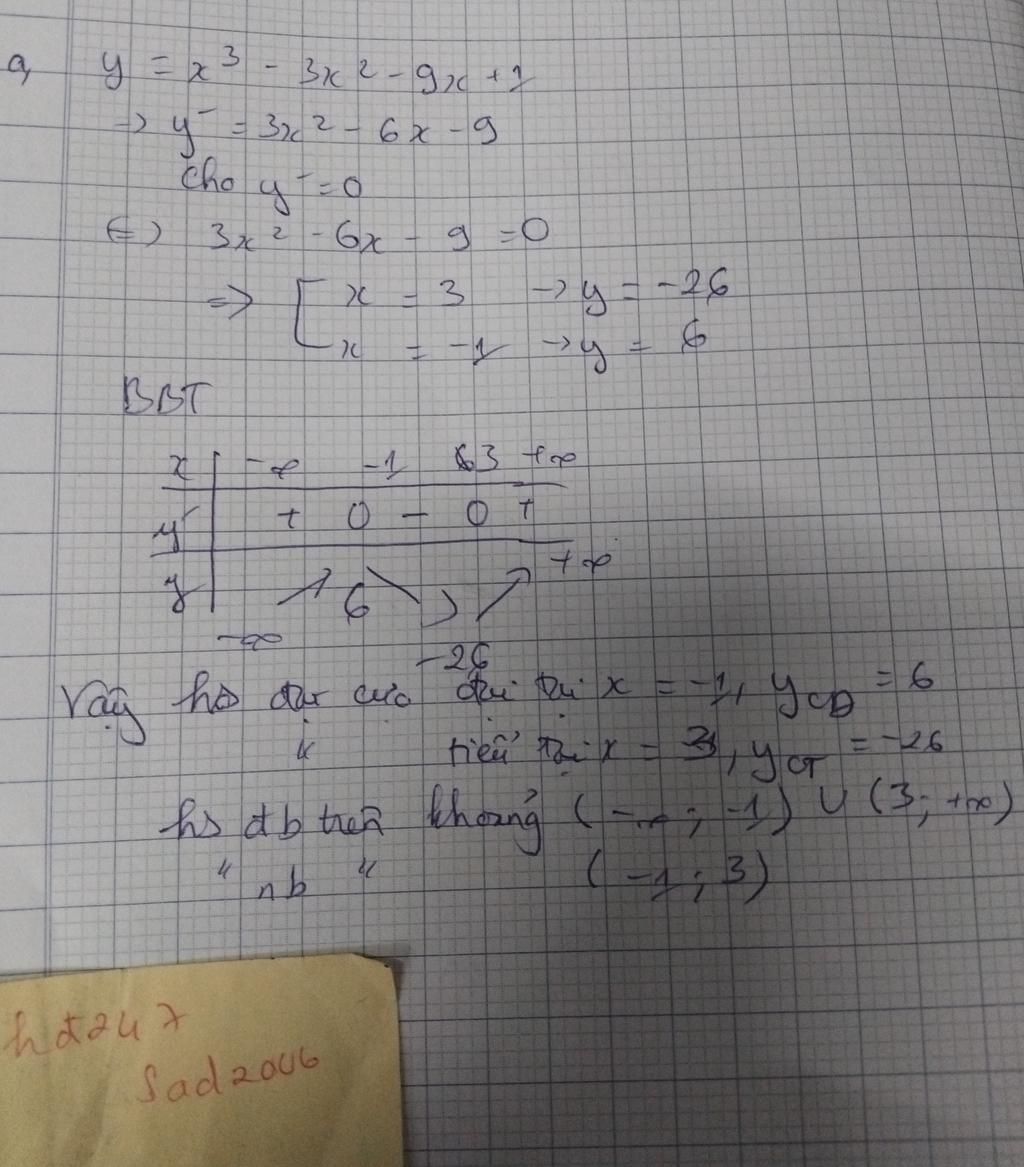 a, y = x³ - 3x² - 9x + 1
→ y' = 3x² - 6x - 9
Cho y' = 0
⇔ 3x² - 6x - 9 = 0
⇒ [ x = 3 → y = -26
x = -1 → y = 6
BBT
x | -∞ -1 3 +∞
y' | + 0 - 0 +
y | -∞ ↗ 6 ↘ -26 ↗ +∞
Vậy hs đạt cực đại tại x = -1, yCĐ = 6
" tiểu tại x = 3, yCT = -26
hs đb trên khoảng (-∞; -1) ∪ (3; +∞)
" nb " (-1; 3)
hđ247
Sad2006